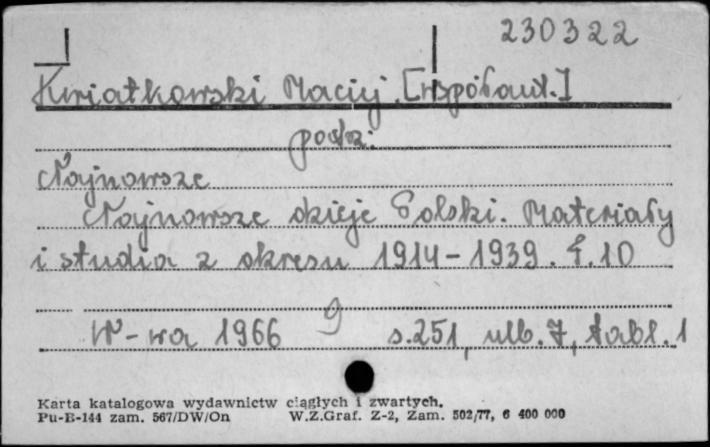 230322
Kwiatkowski Maciej [współaut.]
podz.
Najnowsze
Najnowsze dzieje Polski. Materiały
i studia z okresu 1914-1939. T.10
W-wa 1966 9 s.251, ulb.7, tabl.1
Karta katalogowa wydawnictw ciągłych i zwartych.
Pu-B-144 zam. 567/DW/On W.Z.Graf. Z-2, Zam. 502/77, 6 400 000